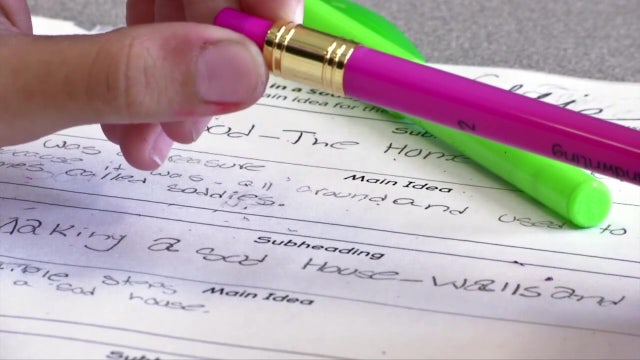 in a So
ain idea for the
Sub
od-The Home
Main Idea
was a treasure
because it was all around and used to
called soddies.
Subheading
Making a Sod House-Walls and
Main Idea
steps
a sod house.
Subh
2
Handwriting